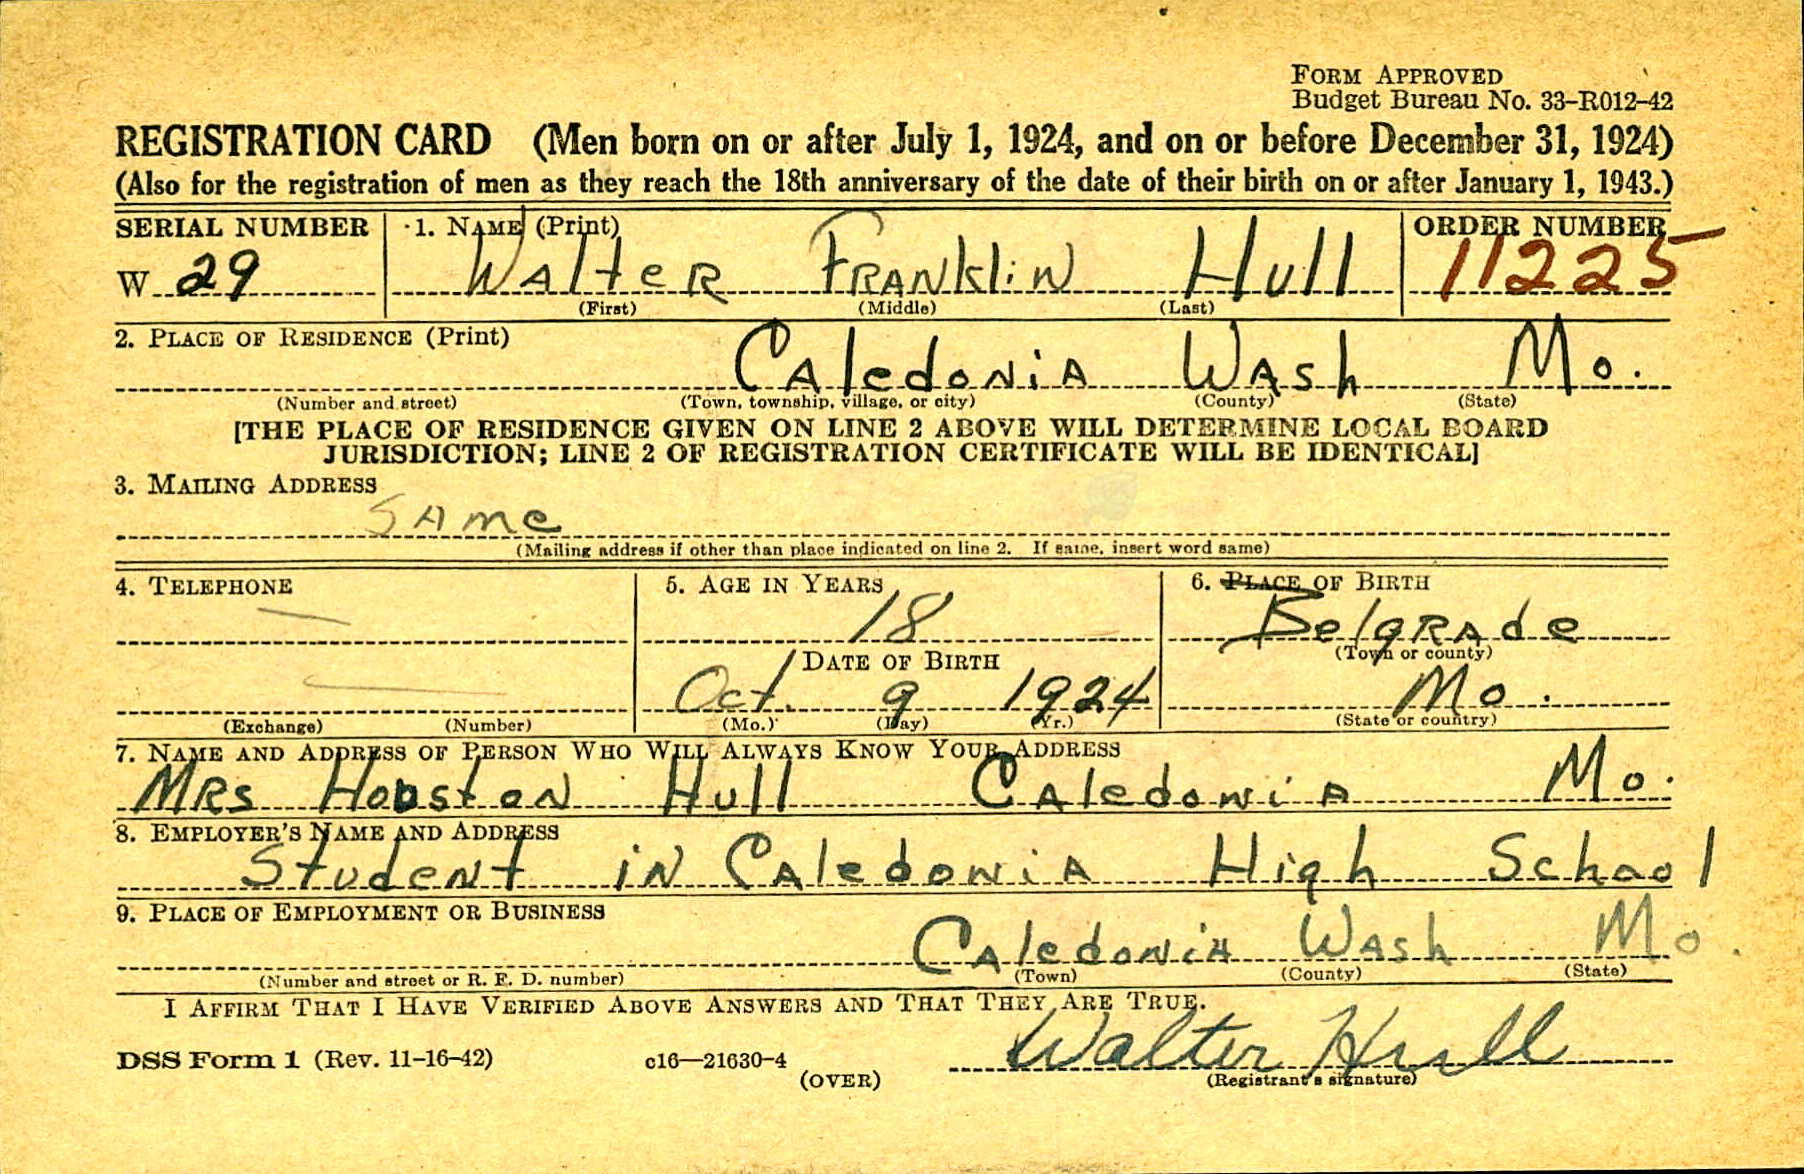 FORM APPROVED
Budget Bureau No. 33-R012-42
REGISTRATION CARD (Men born on or after July 1, 1924, and on or before December 31, 1924)
(Also for the registration of men as they reach the 18th anniversary of the date of their birth on or after January 1, 1943.)
SERIAL NUMBER 1. NAME (Print) ORDER NUMBER
W 29 WAlteR FRANKliN Hull 11225
(First) (Middle) (Last)
2. PLACE OF RESIDENCE (Print)
CAledoNiA WAsh Mo.
(Number and street) (Town, township, village, or city) (County) (State)
[THE PLACE OF RESIDENCE GIVEN ON LINE 2 ABOVE WILL DETERMINE LOCAL BOARD
JURISDICTION; LINE 2 OF REGISTRATION CERTIFICATE WILL BE IDENTICAL]
3. MAILING ADDRESS
SAme
(Mailing address if other than place indicated on line 2. If same, insert word same)
4. TELEPHONE 5. AGE IN YEARS 6. PLACE OF BIRTH
— 18 BelgRAde
DATE OF BIRTH (Town or county)
— Oct. 9 1924 Mo.
(Exchange) (Number) (Mo.) (Day) (Yr.) (State or country)
7. NAME AND ADDRESS OF PERSON WHO WILL ALWAYS KNOW YOUR ADDRESS
MRs Houston Hull CAledoniA Mo.
8. EMPLOYER'S NAME AND ADDRESS
StudeNt iN CAledoniA High School
9. PLACE OF EMPLOYMENT OR BUSINESS
CAledoniA WAsh Mo.
(Number and street or R. F. D. number) (Town) (County) (State)
I AFFIRM THAT I HAVE VERIFIED ABOVE ANSWERS AND THAT THEY ARE TRUE.
DSS Form 1 (Rev. 11-16-42) c16—21630-4 Walter Hull
(OVER) (Registrant's signature)